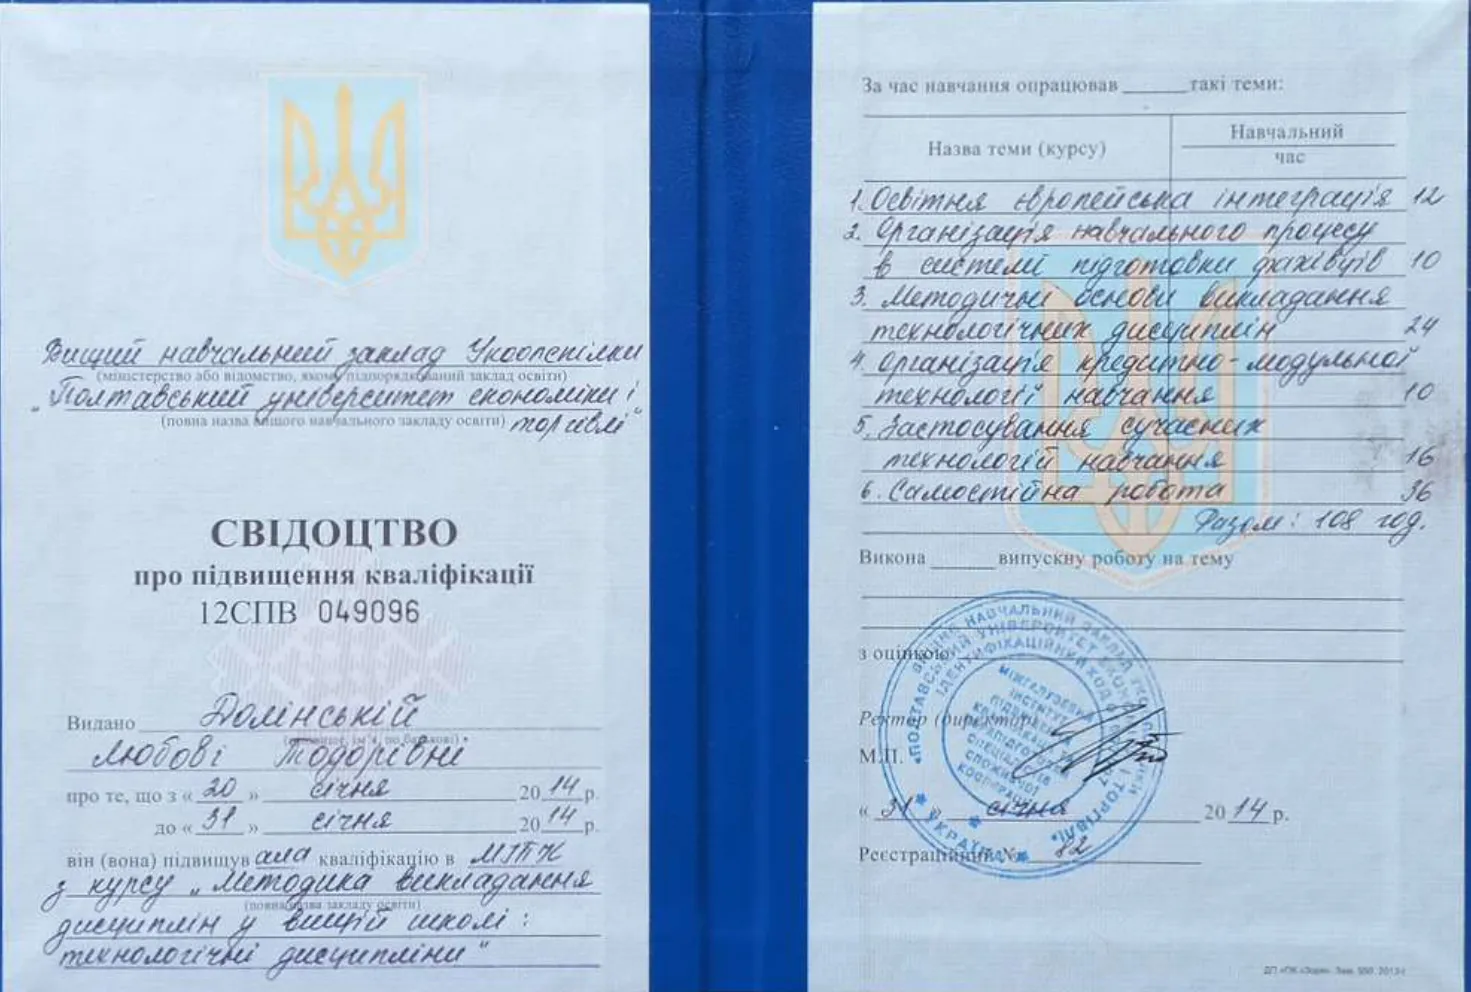 Вищий навчальний заклад Укоопспілки
(міністерство або відомство, якому підпорядкований заклад освіти)
„Полтавський університет економіки і
(повна назва вищого навчального закладу освіти) торгівлі"
СВІДОЦТВО
про підвищення кваліфікації
12СПВ 049096
Видано Долінській
(прізвище, ім'я, по батькові)
Любові Тодорівні
про те, що з « 20 » січня 2014 р.
до « 31 » січня 2014 р.
він (вона) підвищув ала кваліфікацію в МІПК
з курсу „Методика викладання
(повна назва закладу освіти)
дисциплін у вищій школі:
технологічні дисципліни"
За час навчання опрацював ______ такі теми:
Назва теми (курсу)
Навчальний
час
1. Освітня європейська інтеграція 12
2. Організація навчального процесу
в системі підготовки фахівців 10
3. Методичні основи викладання
технологічних дисциплін 24
4. Організація кредитно-модульної
технології навчання 10
5. Застосування сучасних
технологій навчання 16
6. Самостійна робота 36
Разом: 108 год.
Викона ______ випускну роботу на тему
з оцінкою
Ректор (директор)
М.П.
« 31 » січня 2014 р.
Реєстраційний № 82
ВИЩИЙ НАВЧАЛЬНИЙ ЗАКЛАД УКООПСПІЛКИ
«ПОЛТАВСЬКИЙ УНІВЕРСИТЕТ ЕКОНОМІКИ І ТОРГІВЛІ»
ІДЕНТИФІКАЦІЙНИЙ КОД
УКРАЇНА
МІЖГАЛУЗЕВИЙ
ІНСТИТУТ
ПІДВИЩЕННЯ
КВАЛІФІКАЦІЇ
ТА ПЕРЕПІДГОТОВКИ
СПЕЦІАЛІСТІВ
СПОЖИВЧОЇ
КООПЕРАЦІЇ
ДП «ПК «Зоря». Зам. 550. 2013 г.